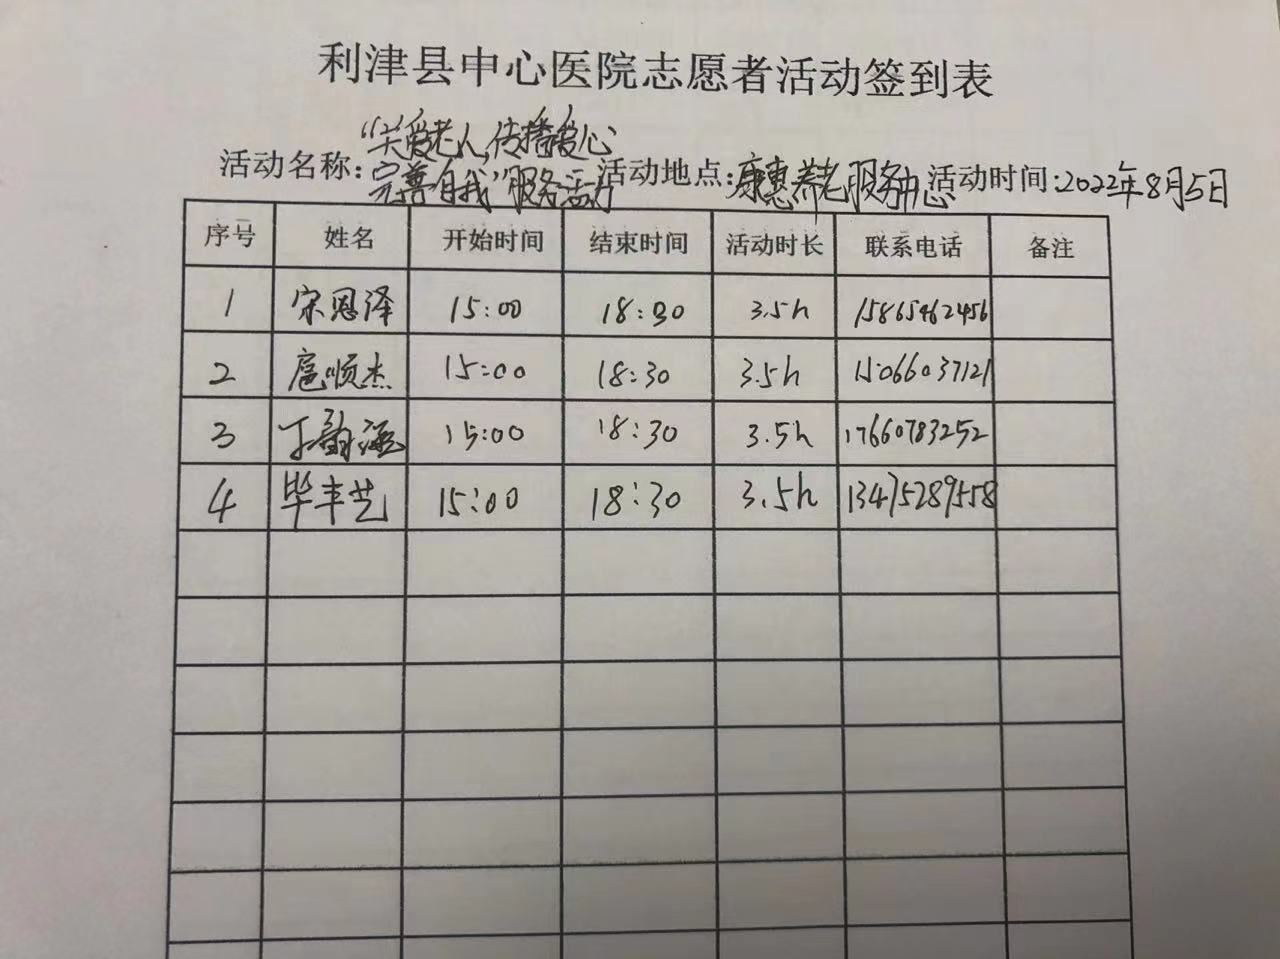 利津县中心医院志愿者活动签到表
活动名称:“关爱老人,传播爱心、完善自我”服务活动 活动地点:康惠养老服务中心 活动时间:2022年8月5日
序号 姓名 开始时间 结束时间 活动时长 联系电话 备注
1 宋恩泽 15:00 18:30 3.5h 15865462456
2 扈顺杰 15:00 18:30 3.5h 15066037121
3 丁韵涵 15:00 18:30 3.5h 17660783252
4 毕丰艺 15:00 18:30 3.5h 13475289558